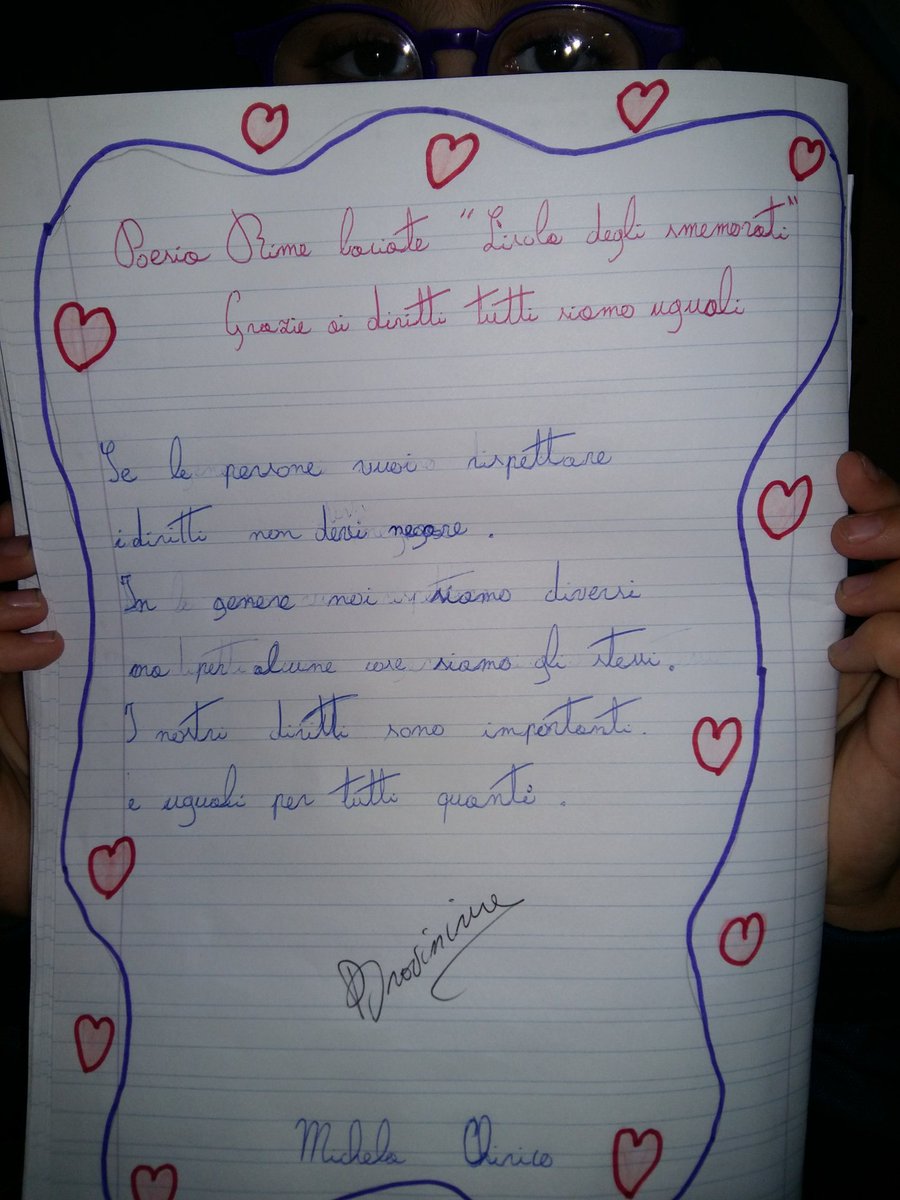 Poesia Rime baciate "L'isola degli smemorati"
Grazie ai diritti tutti siamo uguali
Se le persone vuoi rispettare
i diritti non devi negare.
In genere noi siamo diversi
ma per alcune cose siamo gli stessi.
I nostri diritti sono importanti.
e uguali per tutti quanti.
Michela Chirico